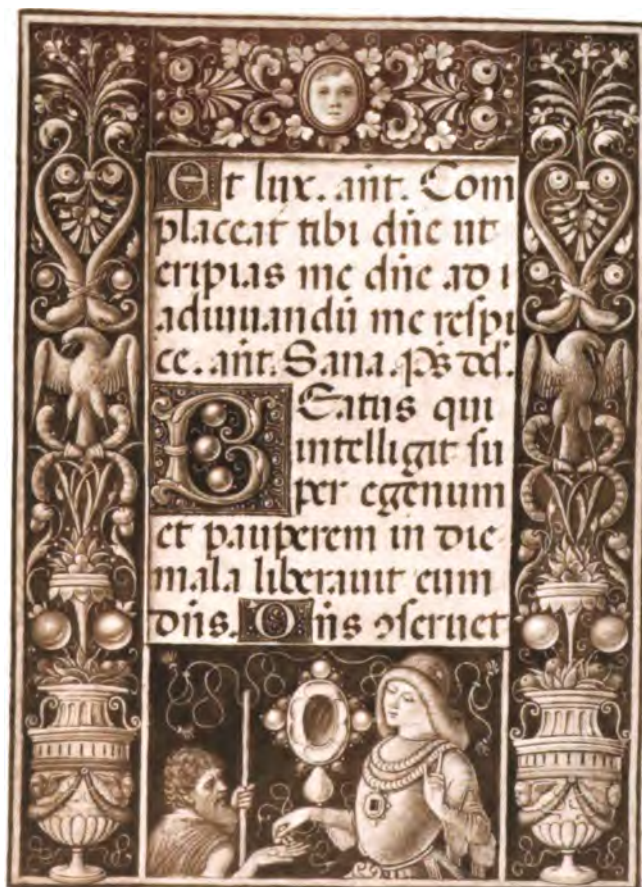 Et lux. añt. Com
placeat tibi dñe ut
eripias me dñe ad i
adiuuandū me respi
ce. añt. Sana. ps̄ dd̄.
Beatus qui
intelligit su
per egenum
et pauperem in die
mala liberauit eum
dñs. Dñs ꝯseruet